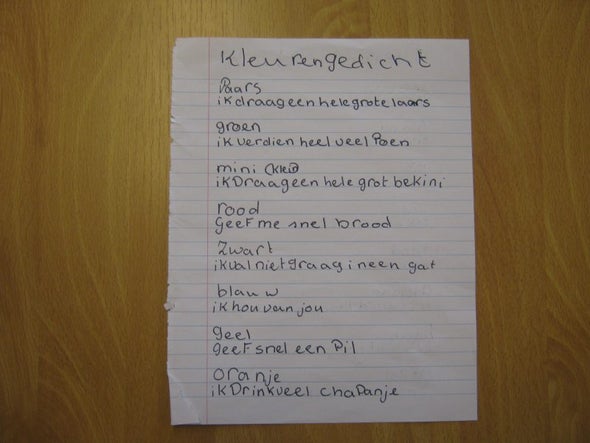 Kleurengedicht
Paars
ik draag een hele grote laars
groen
ik verdien heel veel Poen
mini (kleid)
ik Draag een hele grot bekini
rood
Geef me snel brood
Zwart
ik val niet graag in een gat
blauw
ik hou van jou
geel
geef snel een Pil
oranje
ik Drink veel chaPanje